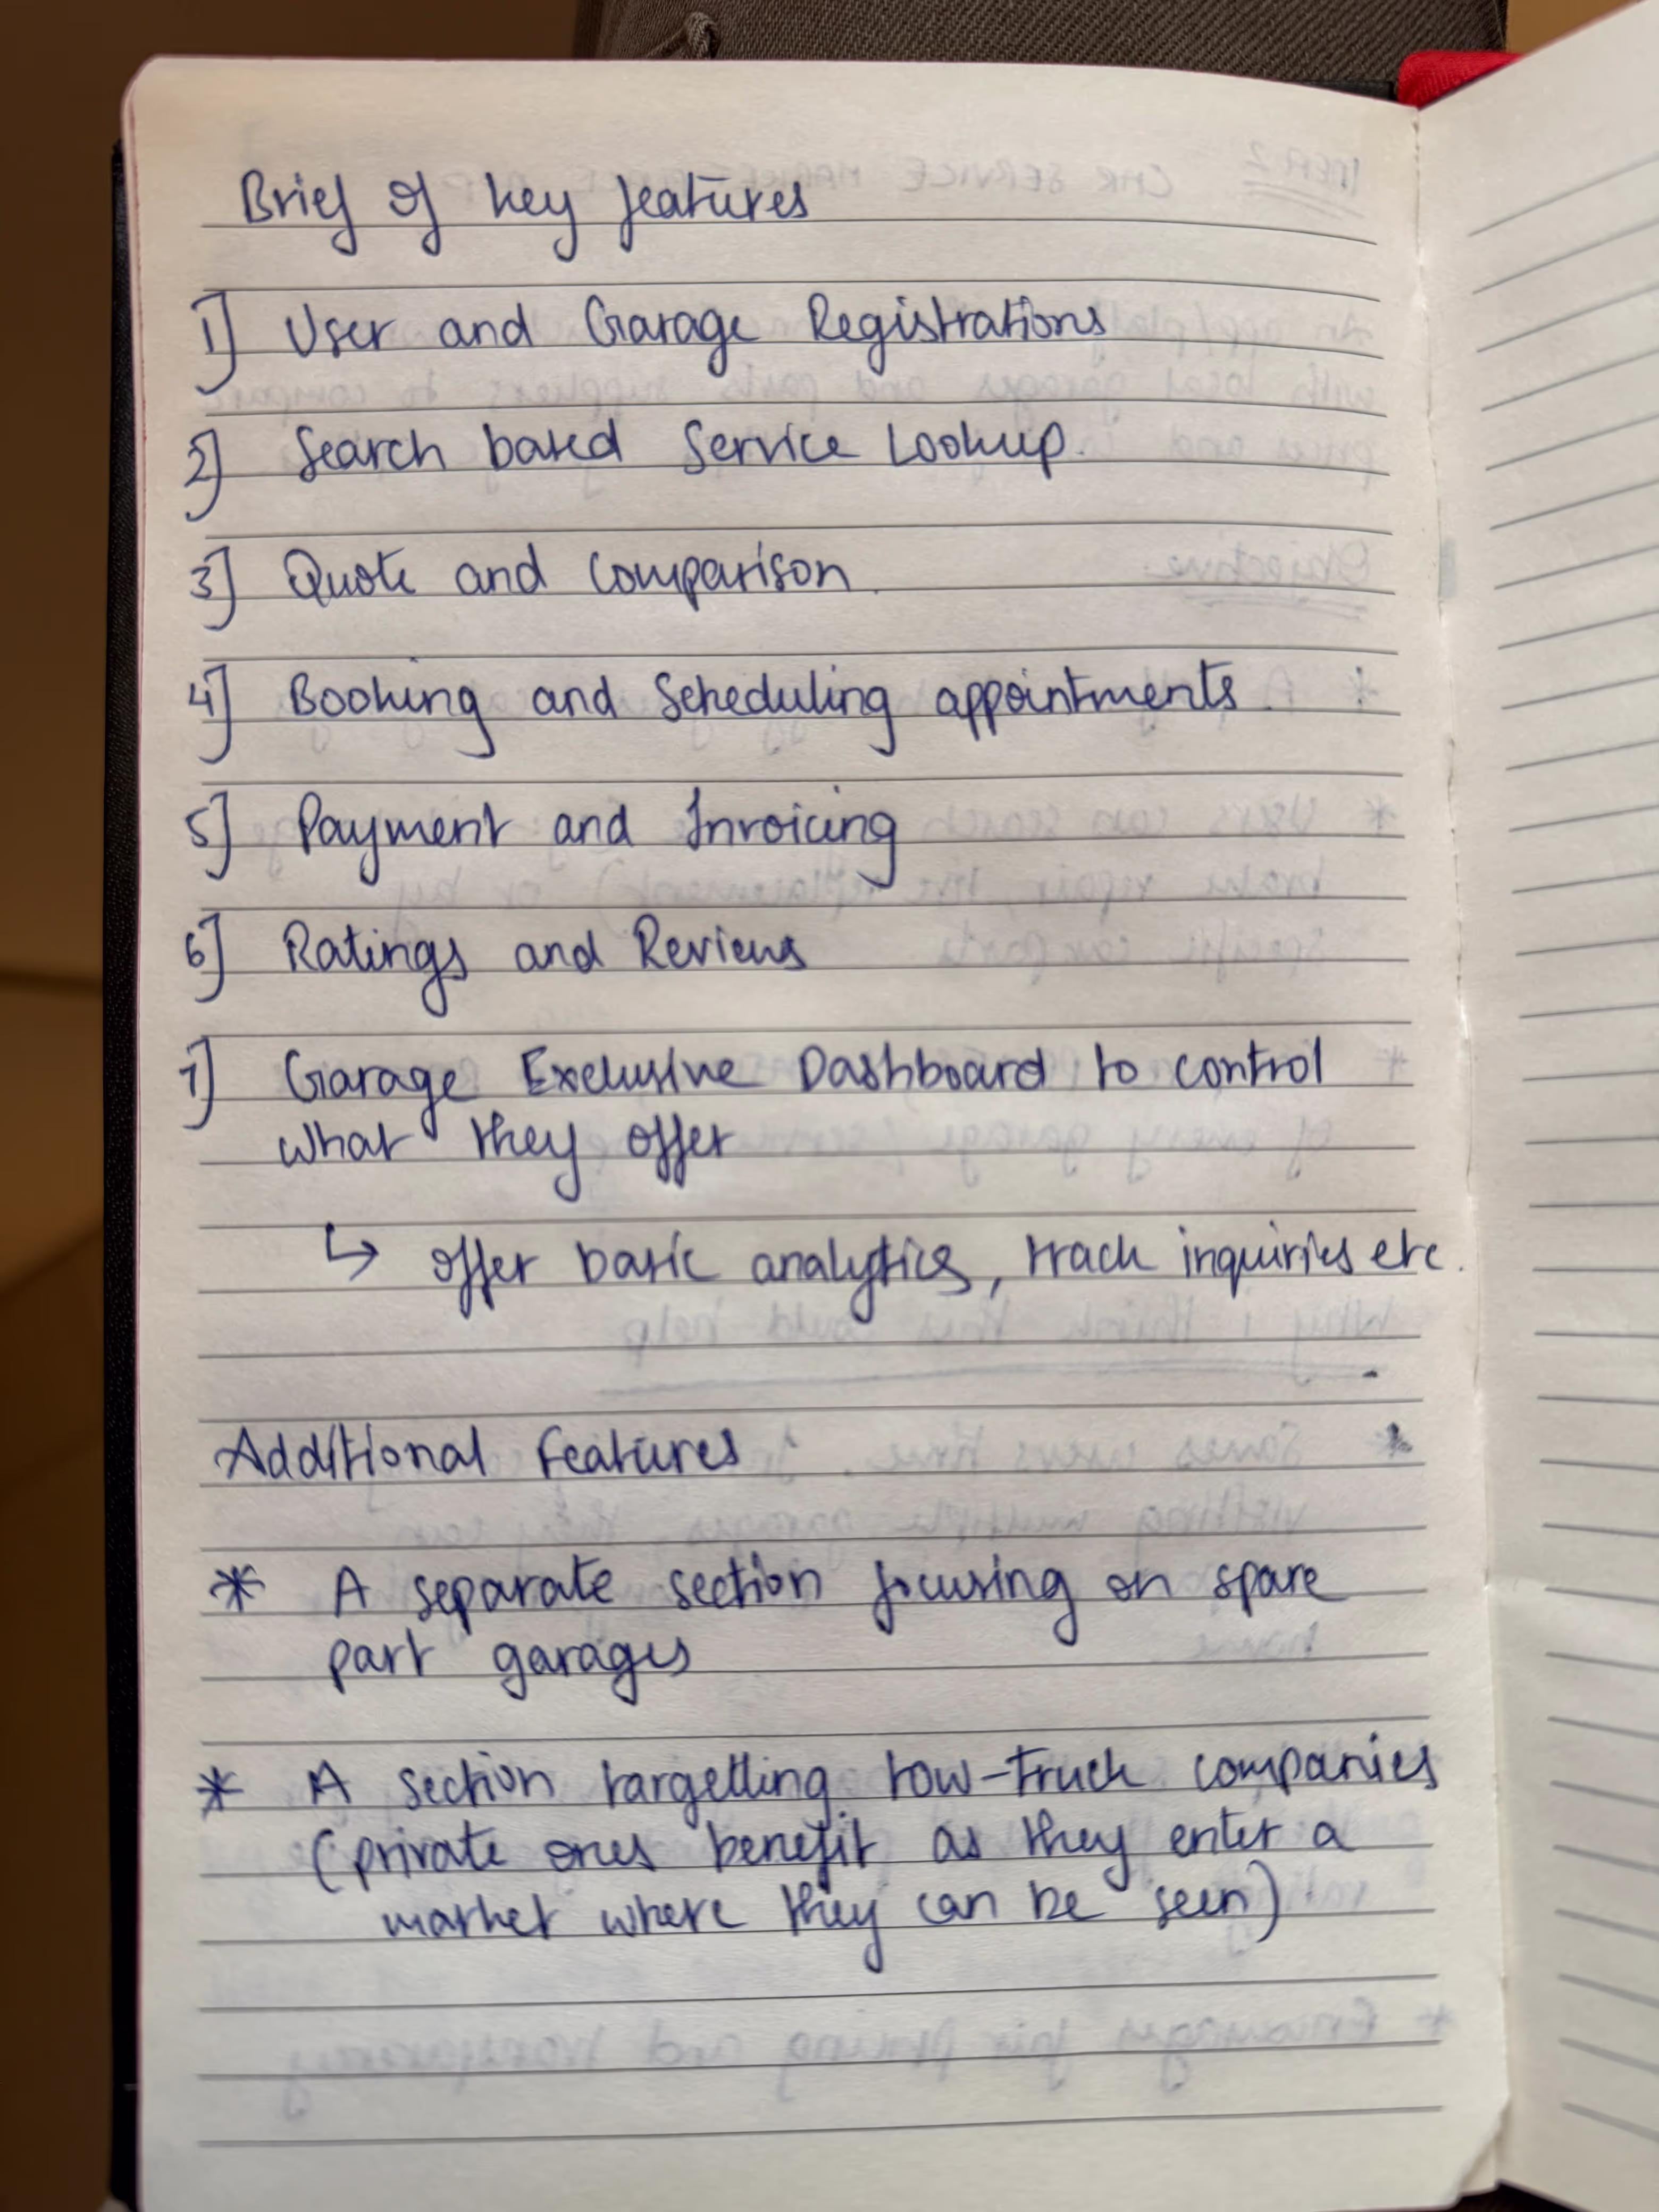 Brief of key features
1] User and Garage Registrations
2] Search based Service Lookup.
3] Quote and Comparison.
4] Booking and Scheduling appointments.
5] Payment and Invoicing
6] Ratings and Reviews
7] Garage Exclusive Dashboard to control
what they offer
↳ offer basic analytics, track inquiries etc.
Additional Features
* A separate section focusing on spare
part garages
* A section targetting tow-truck companies
(private ones benefit as they enter a
market where they can be seen)